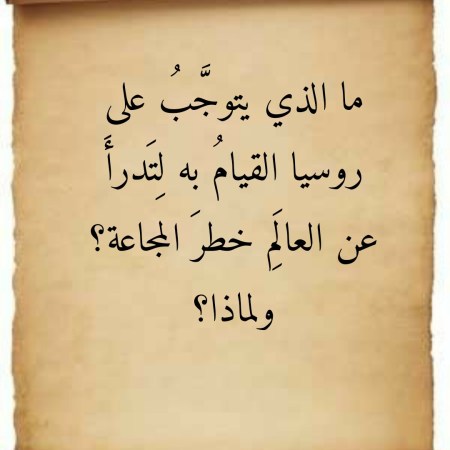 ما الذي يتوجَّبُ على
روسيا القيامُ به لِتَدرأَ
عن العالَمِ خطرَ المجاعة؟
ولماذا؟